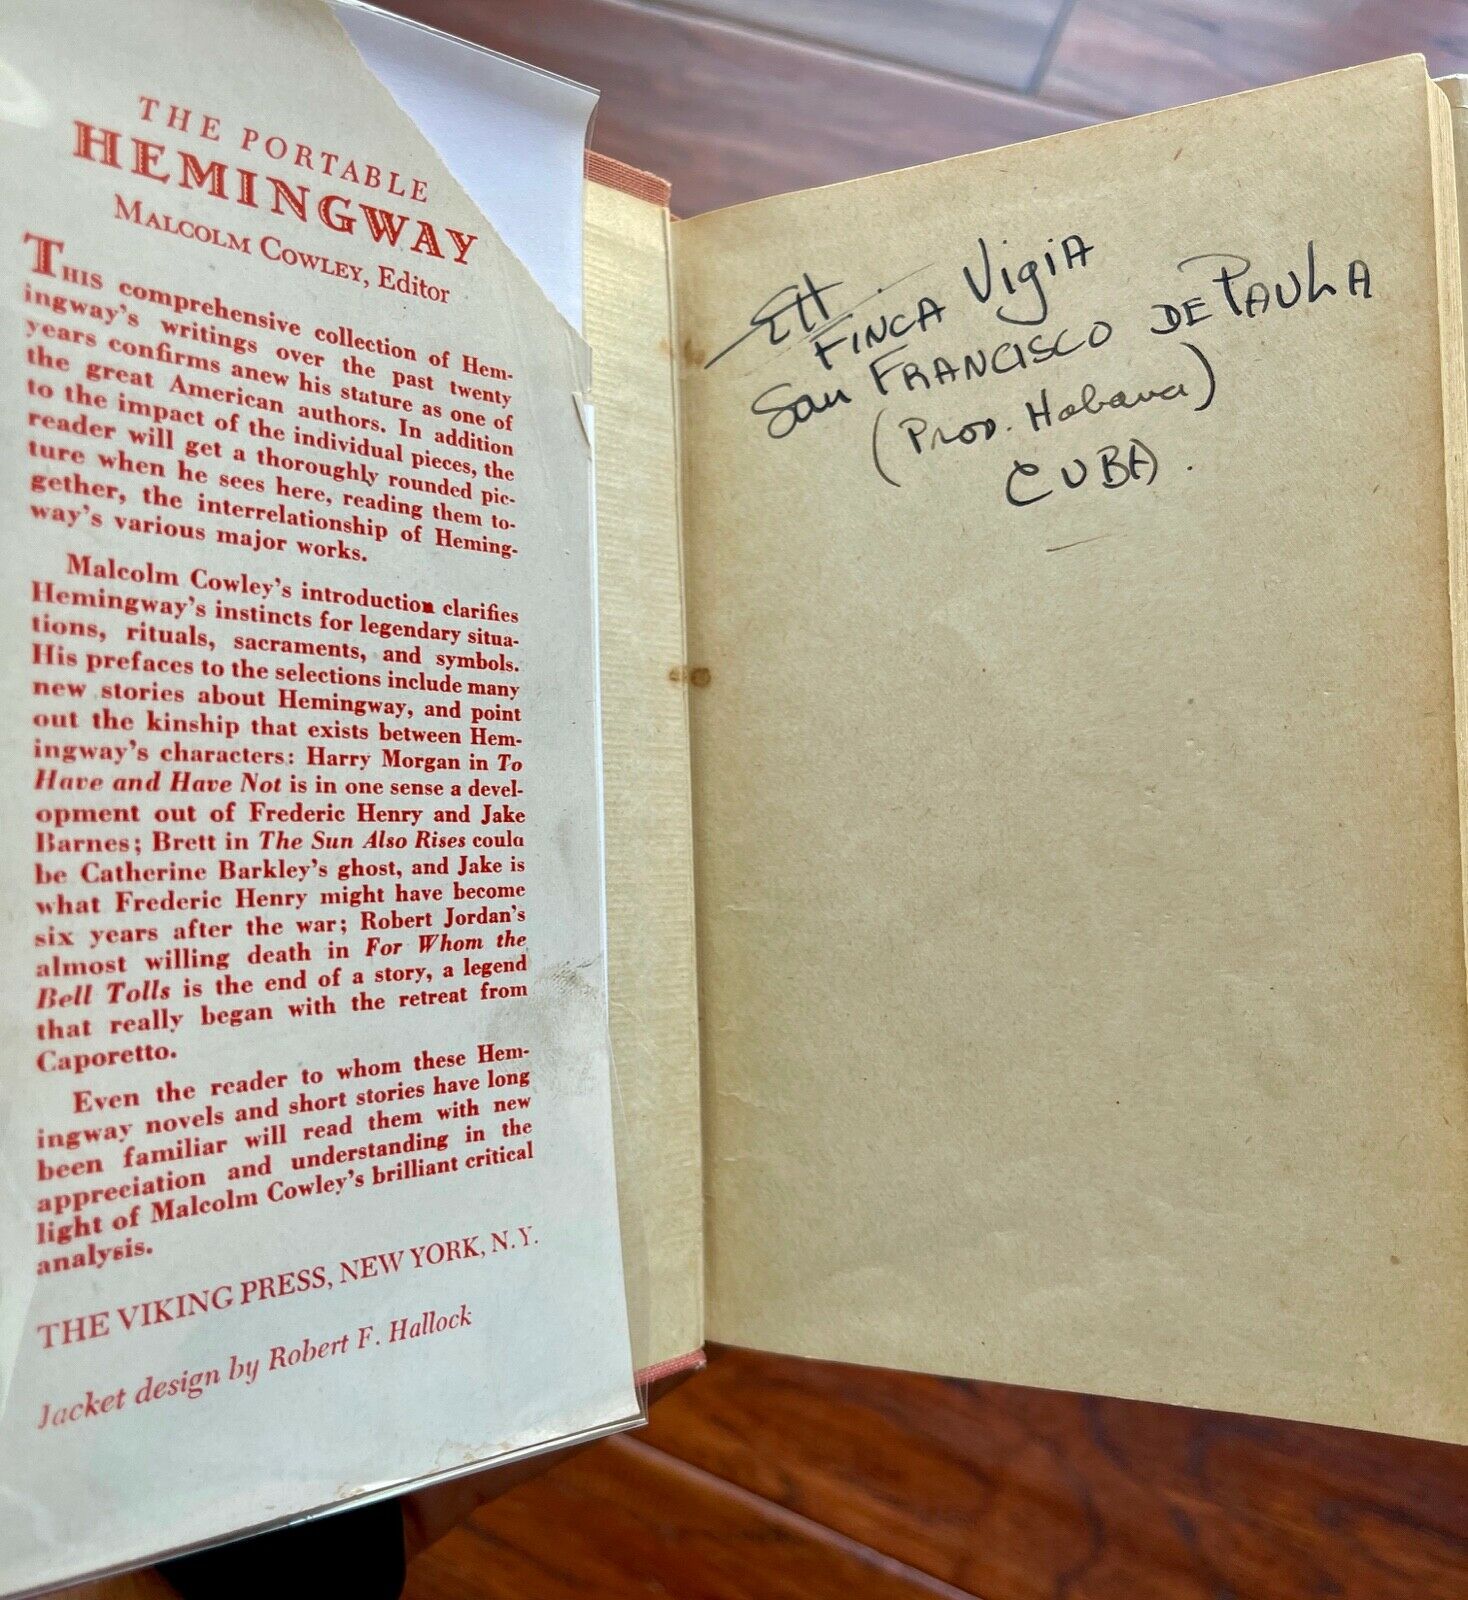 THE PORTABLE
HEMINGWAY
MALCOLM COWLEY, Editor
THIS comprehensive collection of Hem-
ingway's writings over the past twenty
years confirms anew his stature as one of
the great American authors. In addition
to the impact of the individual pieces, the
reader will get a thoroughly rounded pic-
ture when he sees here, reading them to-
gether, the interrelationship of Heming-
way's various major works.
Malcolm Cowley's introduction clarifies
Hemingway's instincts for legendary situa-
tions, rituals, sacraments, and symbols.
His prefaces to the selections include many
new stories about Hemingway, and point
out the kinship that exists between Hem-
ingway's characters: Harry Morgan in To
Have and Have Not is in one sense a devel-
opment out of Frederic Henry and Jake
Barnes; Brett in The Sun Also Rises could
be Catherine Barkley's ghost, and Jake is
what Frederic Henry might have become
six years after the war; Robert Jordan's
almost willing death in For Whom the
Bell Tolls is the end of a story, a legend
that really began with the retreat from
Caporetto.
Even the reader to whom these Hem-
ingway novels and short stories have long
been familiar will read them with new
appreciation and understanding in the
light of Malcolm Cowley's brilliant critical
analysis.
THE VIKING PRESS, NEW YORK, N.Y.
Jacket design by Robert F. Hallock
EH.
FINCA VigiA
San FRANCISCO DE PAULA
(Prov. Habana)
CUBA.